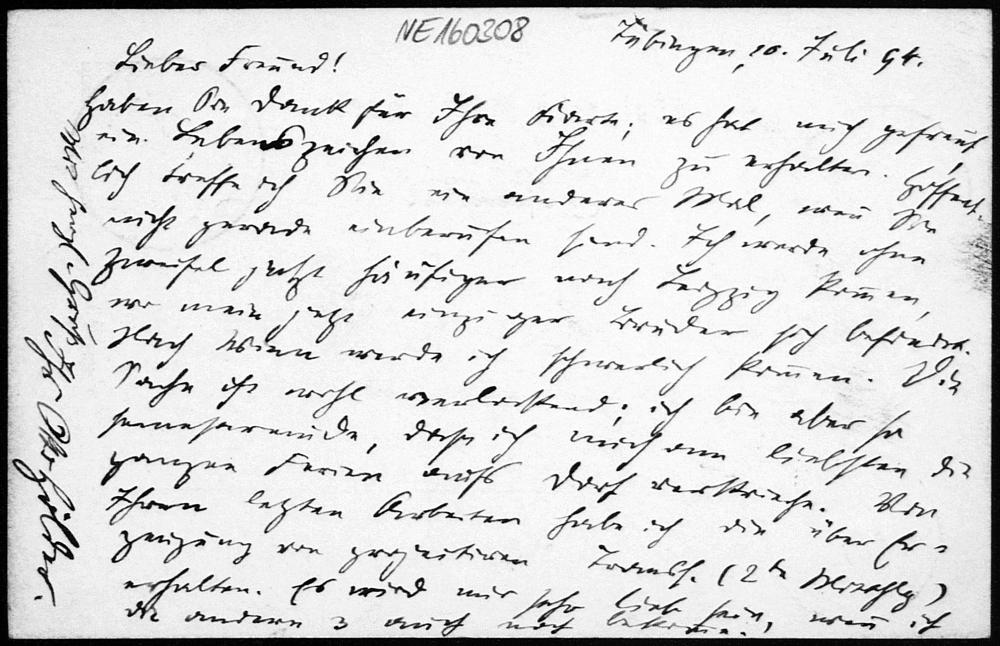 NE160308
Tübingen, 10. Juli 94.
Lieber Freund!
Haben Sie Dank für Ihre Karte; es hat mich gefreut,
ein Lebenszeichen von Ihnen zu erhalten. Hoffent-
lich treffe ich Sie ein anderes Mal, wenn Sie
nicht gerade einberufen sind. Ich werde ohne
Zweifel jetzt häufiger nach Leipzig kommen,
wo mein jetzt einziger Bruder sich befindet.
Nach Wien werde ich schwerlich kommen. Die
Sache ist wohl verlockend; ich bin aber so
semestermüde, dass ich mich am liebsten die
ganzen Ferien aufs Dorf verkrieche. Von
Ihren letzten Arbeiten habe ich die über Er-
zeugung von projectiven Transf. (2te)
erhalten. Es wird mir sehr lieb sein, wenn ich
die andern 3 auch noch bekomme.
Mit herzl. Gruß Ihr O. Hölder.